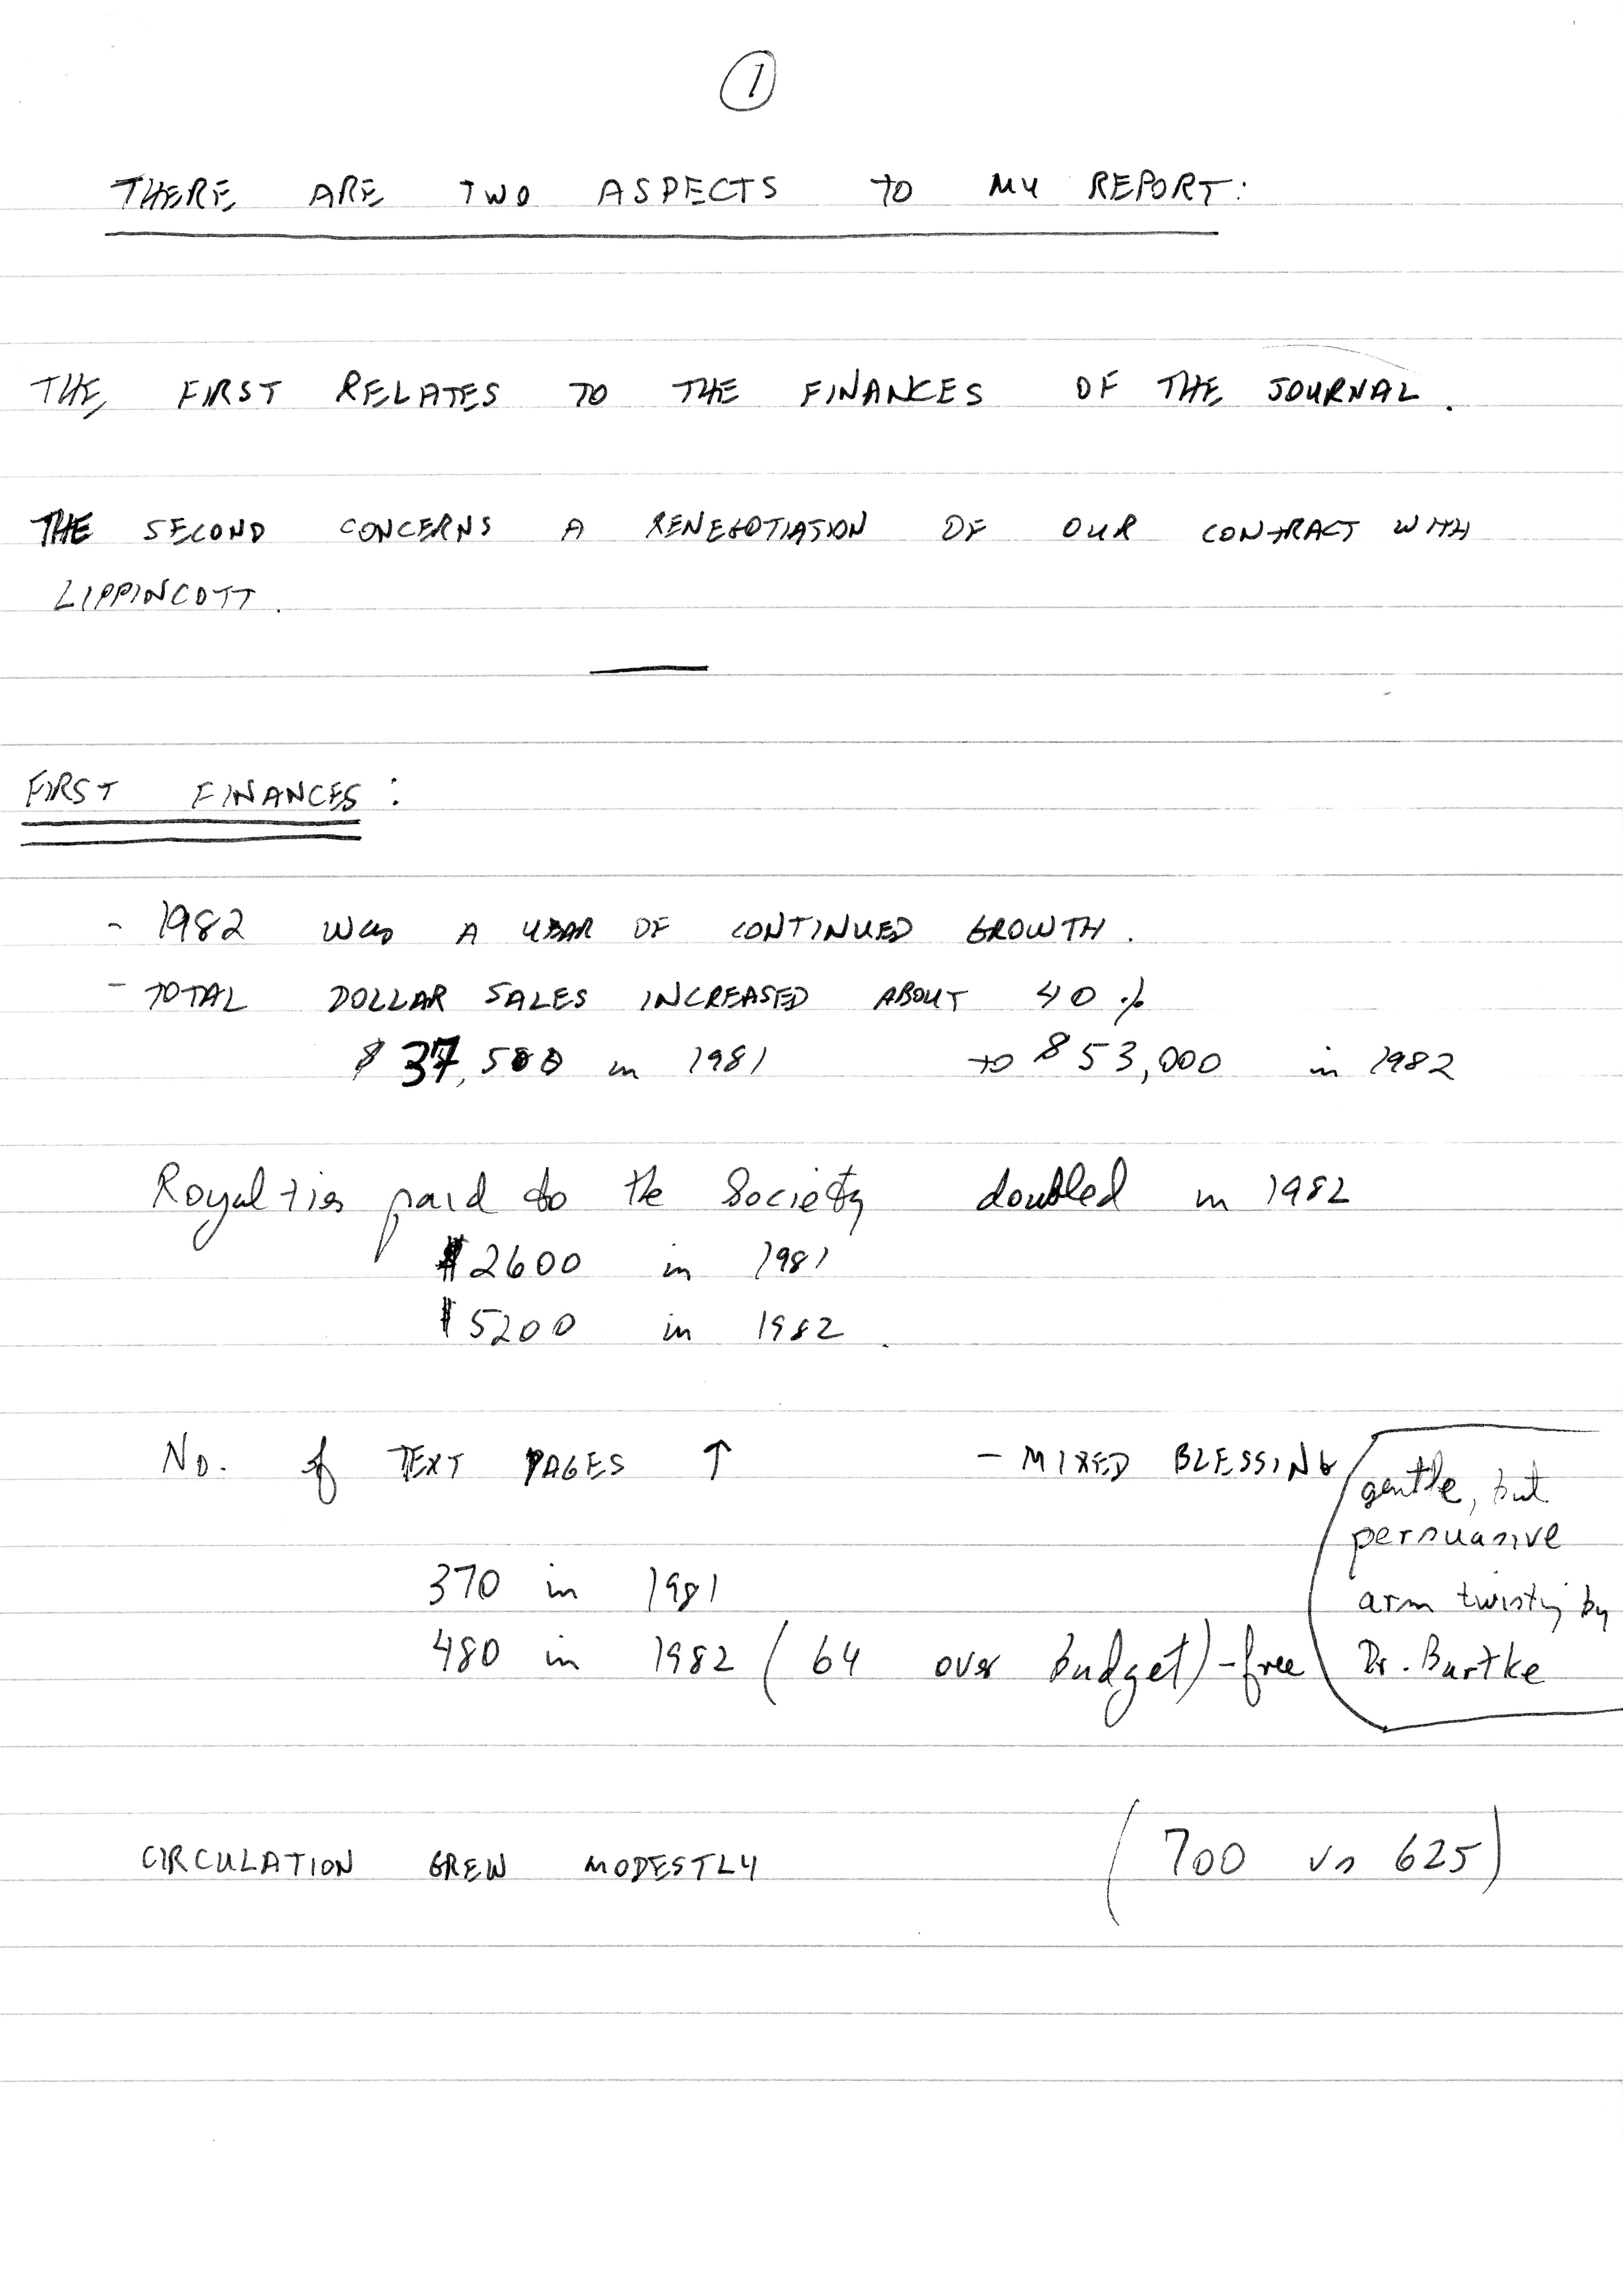 1
THERE ARE TWO ASPECTS TO MY REPORT:
THE FIRST RELATES TO THE FINANCES OF THE JOURNAL.
THE SECOND CONCERNS A RENEGOTIATION OF OUR CONTRACT WITH
LIPPINCOTT.
FIRST FINANCES:
- 1982 was A YEAR OF CONTINUED GROWTH.
- TOTAL DOLLAR SALES INCREASED ABOUT 40%
$37,500 in 1981 to $53,000 in 1982
Royalties paid to the Society doubled in 1982
$2600 in 1981
$5200 in 1982.
No. of TEXT PAGES ↑ - MIXED BLESSING
gentle, but
persuasive
arm twisting by
Dr. Bartke
370 in 1981
480 in 1982 (64 over budget) - free
CIRCULATION GREW MODESTLY (700 vs 625)